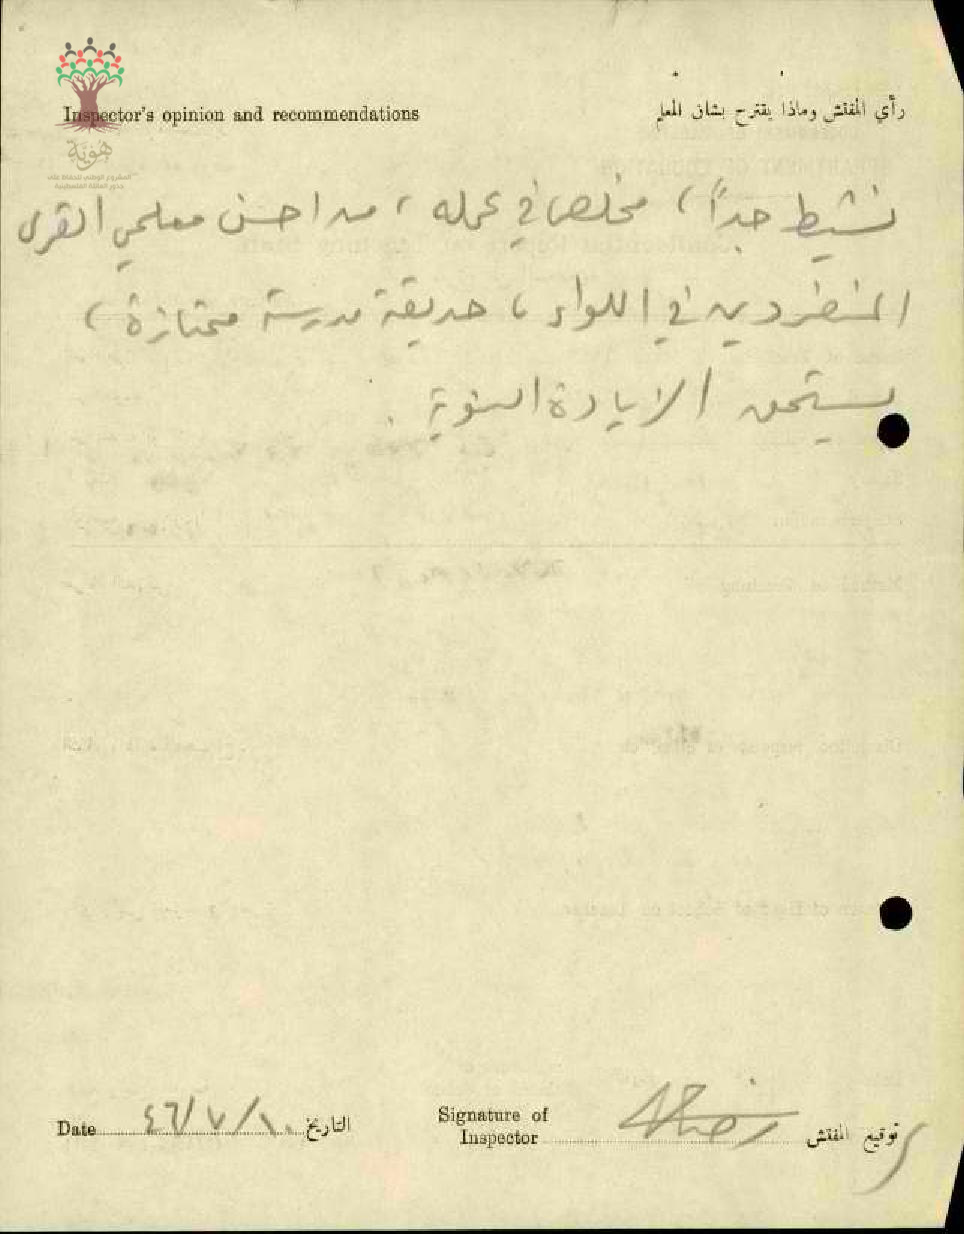 Inspector's opinion and recommendations
رأي المفتش وماذا يقترح بشان المعلم
هوية
المشروع الوطني للحفاظ على
جذور العائلة الفلسطينية
نشيط جداً، مخلص في عمله، من احسن معلمي القرى
المنفردين في اللواء، حديقة مدرسة ممتازة،
يستحق الزيادة السنوية.
Date ٤٦/٧/١٠ التاريخ
Signature of Inspector توقيع المفتش